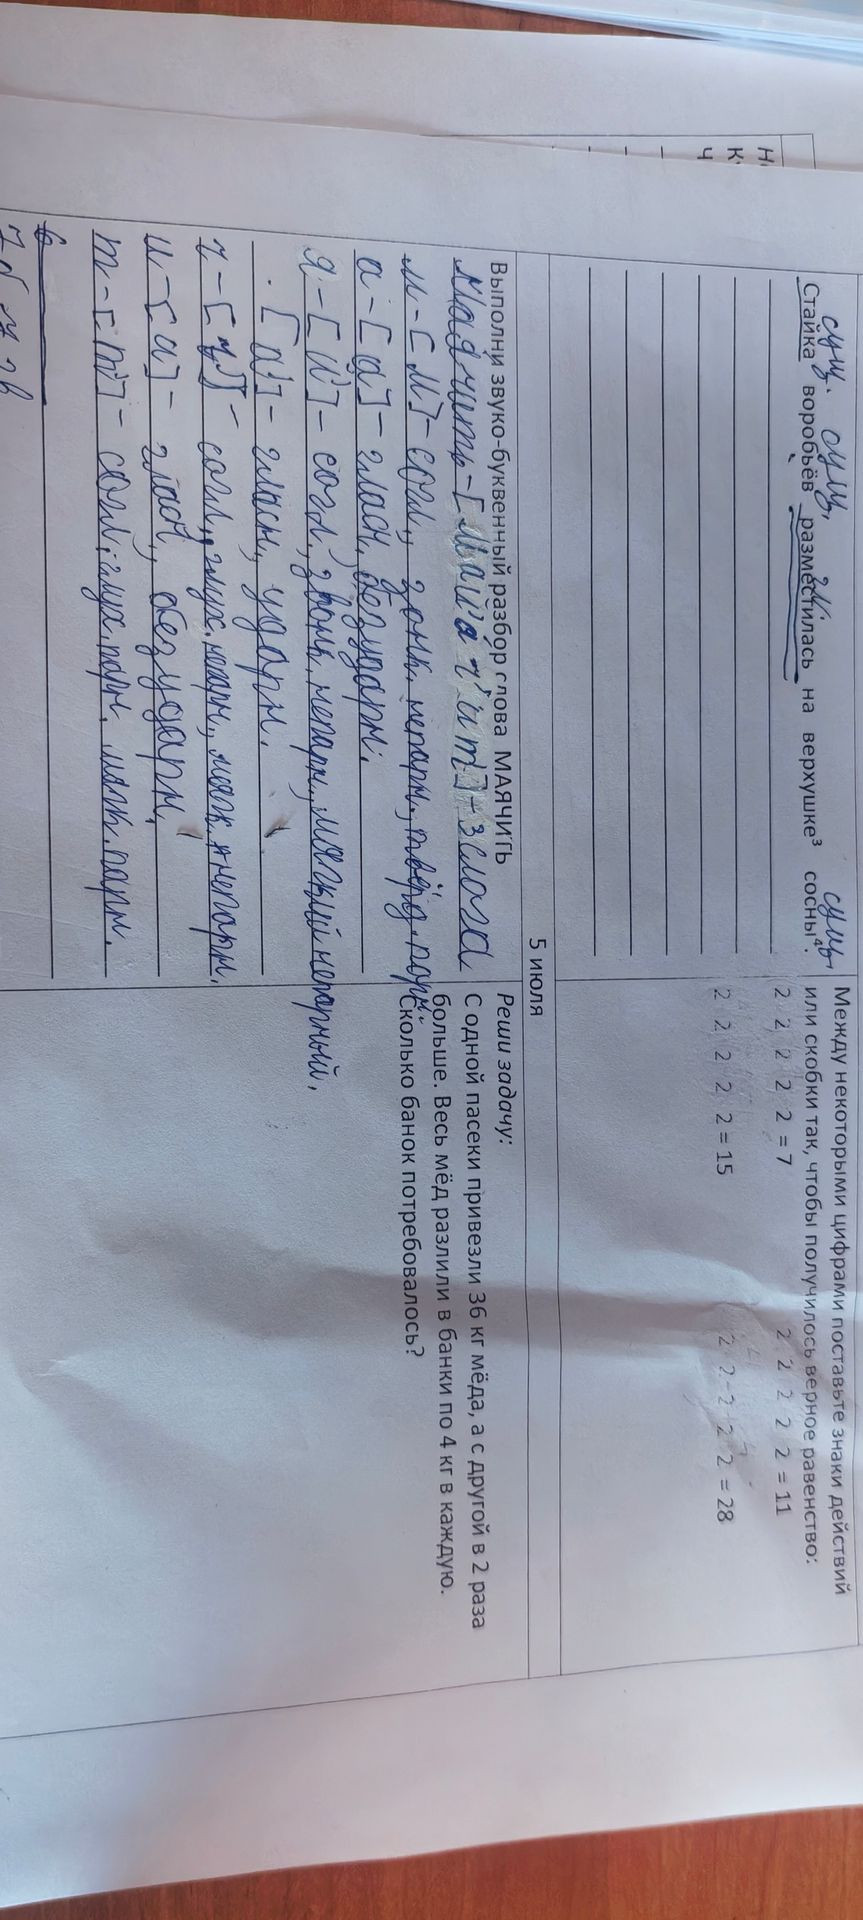 сущ. сущ. гл. сущ.
Стайка воробьёв разместилась на верхушке³ сосны⁴.
Между некоторыми цифрами поставьте знаки действий
или скобки так, чтобы получилось верное равенство:
2 2 2 2 2 = 7 2 2 2 2 2 = 11
2 2 2 2 2 = 15 2 2 2 2 2 = 28
5 июля
Выполни звуко-буквенный разбор слова МАЯЧИТЬ
Маячить - [май'ач'ит'] - 3 слога
м - [м] - согл., зонк. непарн., твёрд. парн.
а - [а] - гласн, безударн.
я - [й'] - согл, звонк, непарн, мягкий непарный.
[а] - гласн, ударн.
ч - [ч'] - согл, глух, непарн, мягк. непарн.
и - [и] - гласн, безударн.
т - [т'] - согл., глух. парн. мягк. парн.
7 б 7 зв
Реши задачу:
С одной пасеки привезли 36 кг мёда, а с другой в 2 раза
больше. Весь мёд разлили в банки по 4 кг в каждую.
Сколько банок потребовалось?